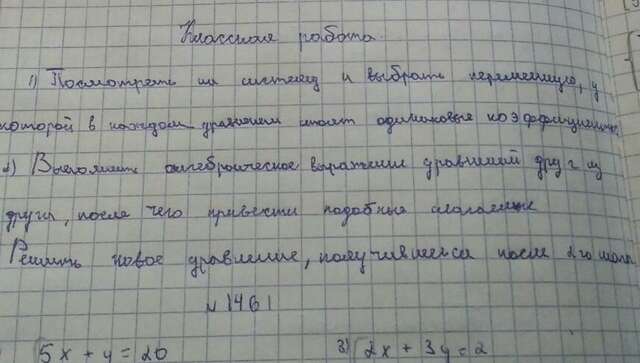 Классная работа.
1) Посмотреть на систему и выбрать переменную, у
которой в каждом уравнении стоят одинаковые коэффициенты.
2) Выполнить алгебраическое выражение уравнений друг из
друга, после чего привести подобные слагаемые
Решить новое уравнение, получившееся после 2го шага.
N 1461
5x + y = 20 3) 2x + 3y = 2